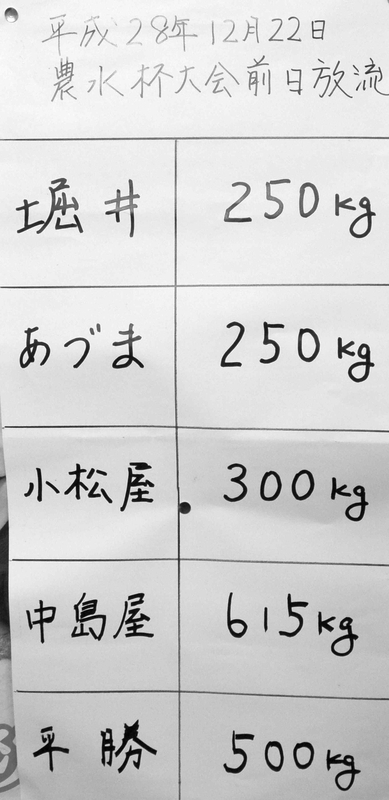 平成28年12月22日
農水杯大会前日放流
堀井 250kg
あづま 250kg
小松屋 300kg
中島屋 615kg
平勝 500kg